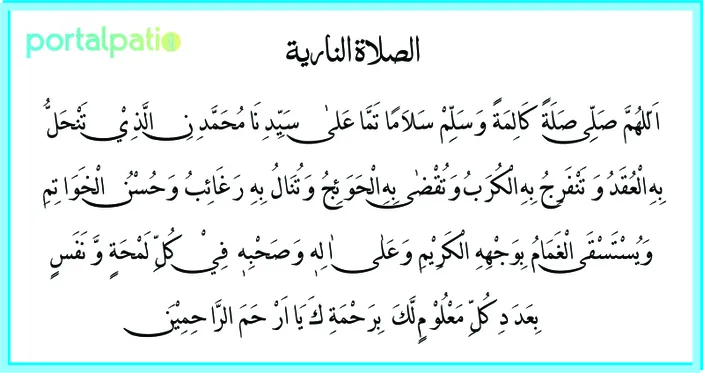 portalpati
الصلاة النارية
اَللهُمَّ صَلِّى صَلَةً كَالِمَةً وَسَلِّمْ سَلَامًا تَمَّا عَلىٰ سَيِّدِنَا مُحَمَّدِنِ الَّذِيْ تَنْحَلُّ
بِهِ الْعُقَدُ وَ تَنْفَرِجُ بِهِ الْكُرَبُ وَتُقْضٰى بِهِ الْحَوَئِجُ وَتُنَالُ بِهِ رَغَائِبُ وَحُسْنُ الْخَوَاتِمِ
وَيُسْتَسْقَى الْغَمَامُ بِوَجْهِهِ الْكَرِيْمِ وَعَلىٰ اٰلِهٖ وَصَحْبِهٖ فِيْ كُلِّ لَمْحَةٍ وَّ نَفَسٍ
بِعَدَدِ كُلِّ مَعْلُوْمٍ لَّكَ بِرَحْمَةِكَ يَا اَرْحَمَ الرَّاحِمِيْنَ